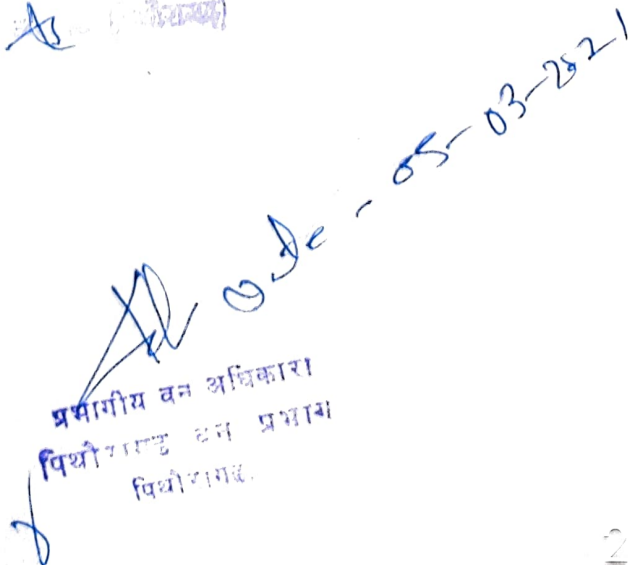 Date - 05-03-2021
प्रभागीय वन अधिकारी
पिथौरागढ़ वन प्रभाग
पिथौरागढ़.
2